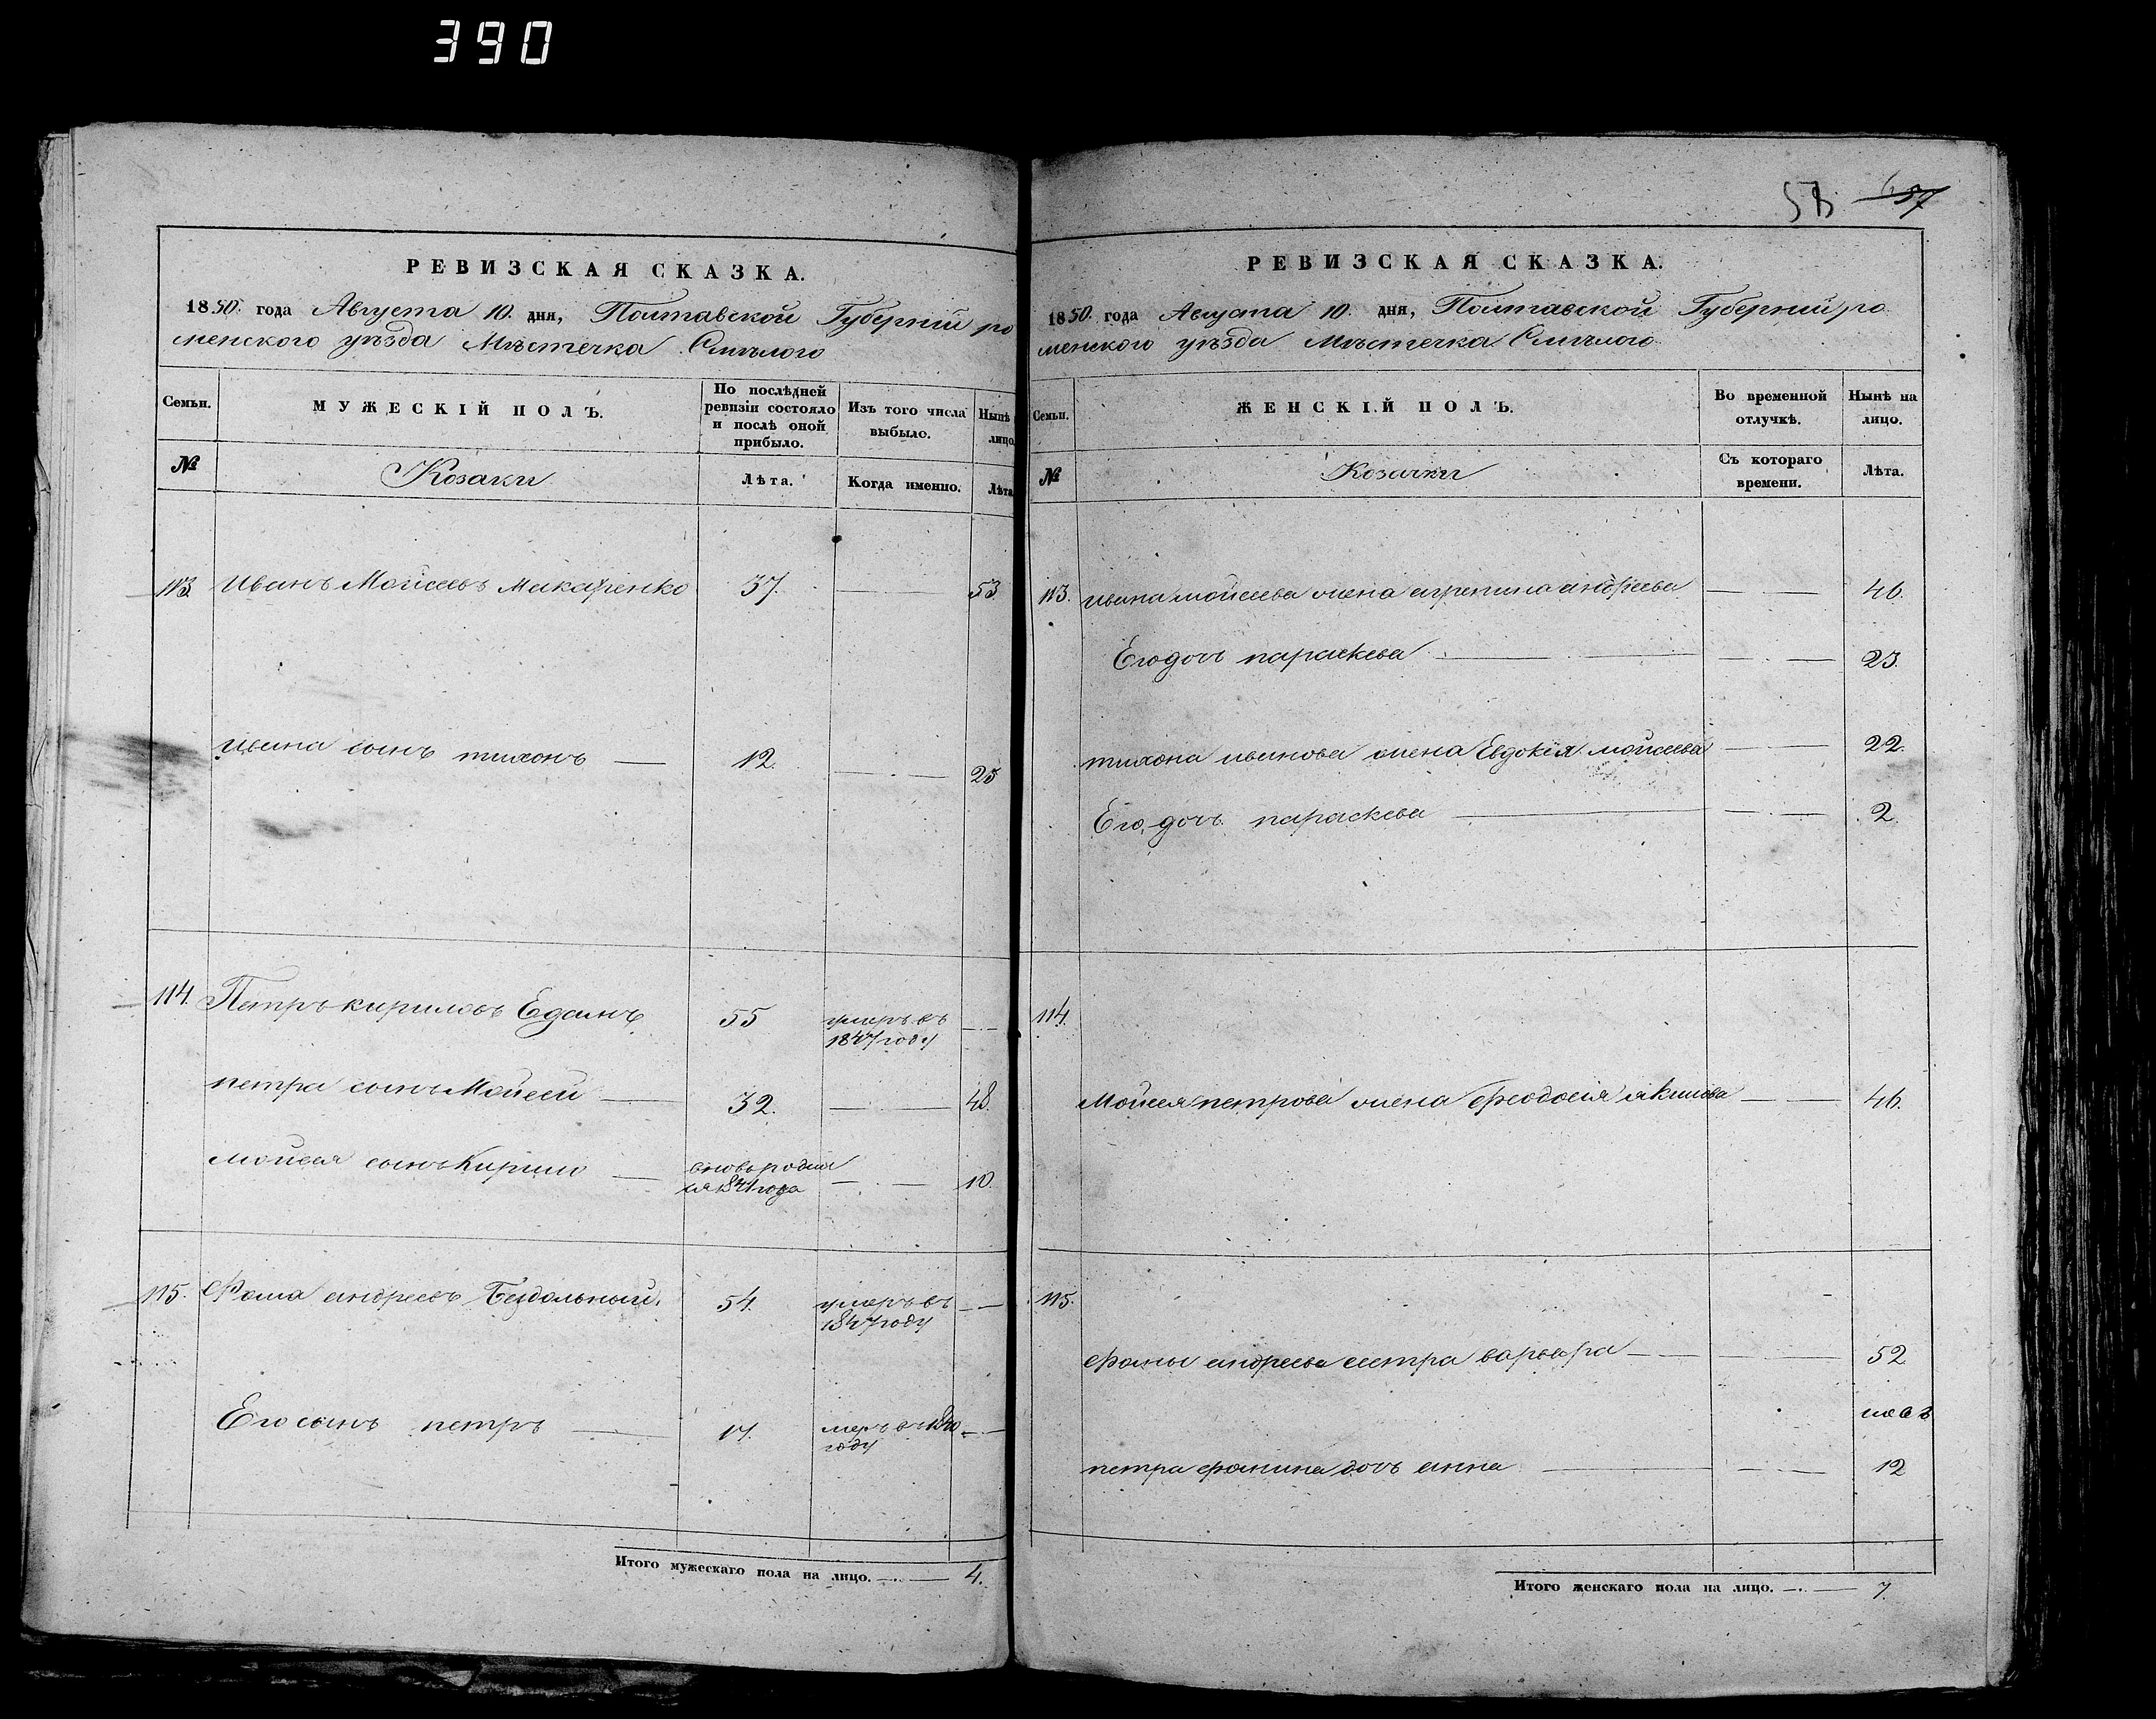 390
58 57
РЕВИЗСКАЯ СКАЗКА.
1850. года Августа 10. дня, Полтавской Губерніи ро
менского уѣзда Мѣстечка Смѣлого
Семьи.
МУЖЕСКІЙ ПОЛЪ.
По послѣдней ревизіи состояло и послѣ оной прибыло.
Изъ того числа выбыло.
Нынѣ лицо.
№
Козаки
Лѣта.
Когда именно.
Лѣта
113. Иванъ Мойсеевъ Макаренко 37. — 53
ивана сынъ тихонъ — 12. — 25
114. Петръ кириловъ Едаинъ 55 умеръ въ — 
1847 году
петра сынъ Мойсей — 32. — 48.
мойсея сынъ Кирило — вновь родил — 10.
ся 1841 года
115. Фома андреевъ Бездольный. 54. умеръ въ —
1847 году
Его сынъ петръ — 17. умеръ въ 1840 —
году
Итого мужескаго пола на лицо. — 4.
РЕВИЗСКАЯ СКАЗКА.
1850 года Августа 10. дня, Полтавской Губерніи ро
менского уѣзда Мѣстечка Смѣлого
Семьи.
ЖЕНСКІЙ ПОЛЪ.
Во временной отлучкѣ.
Нынѣ на лицо.
№
Козачки
Съ котораго времени.
Лѣта.
113. ивана мойсеева жена агрепина андреева — 46.
Его дочь параскева — — 23.
тихона иванова жена Евдокія мойсеева — 22.
Его дочь параскева — — 2.
114.
Мойсея петрова жена феодосія якимова — 46.
115.
фомы андреева сестра варвара — — 52
петра фомина дочь анна — — 12
Итого женскаго пола на лицо. — 7.